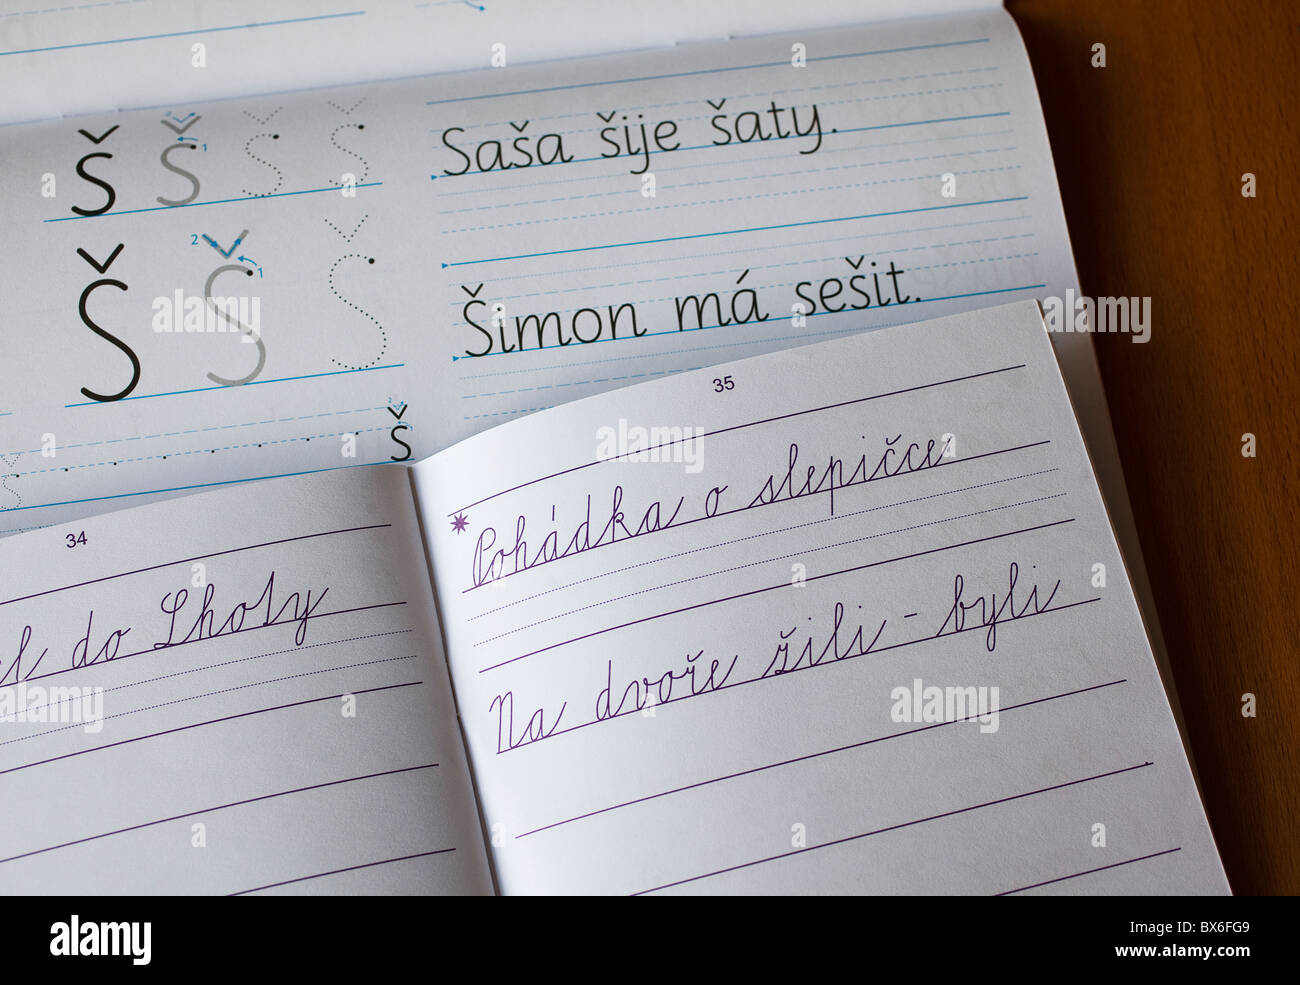 š š š š
Saša šije šaty.
2 1
Š Š Š
Šimon má sešit.
š
35
Pohádka o slepičce
34
do Lhoty
Na dvoře žili - byli
alamy
BX6FG9
www.alamy.com